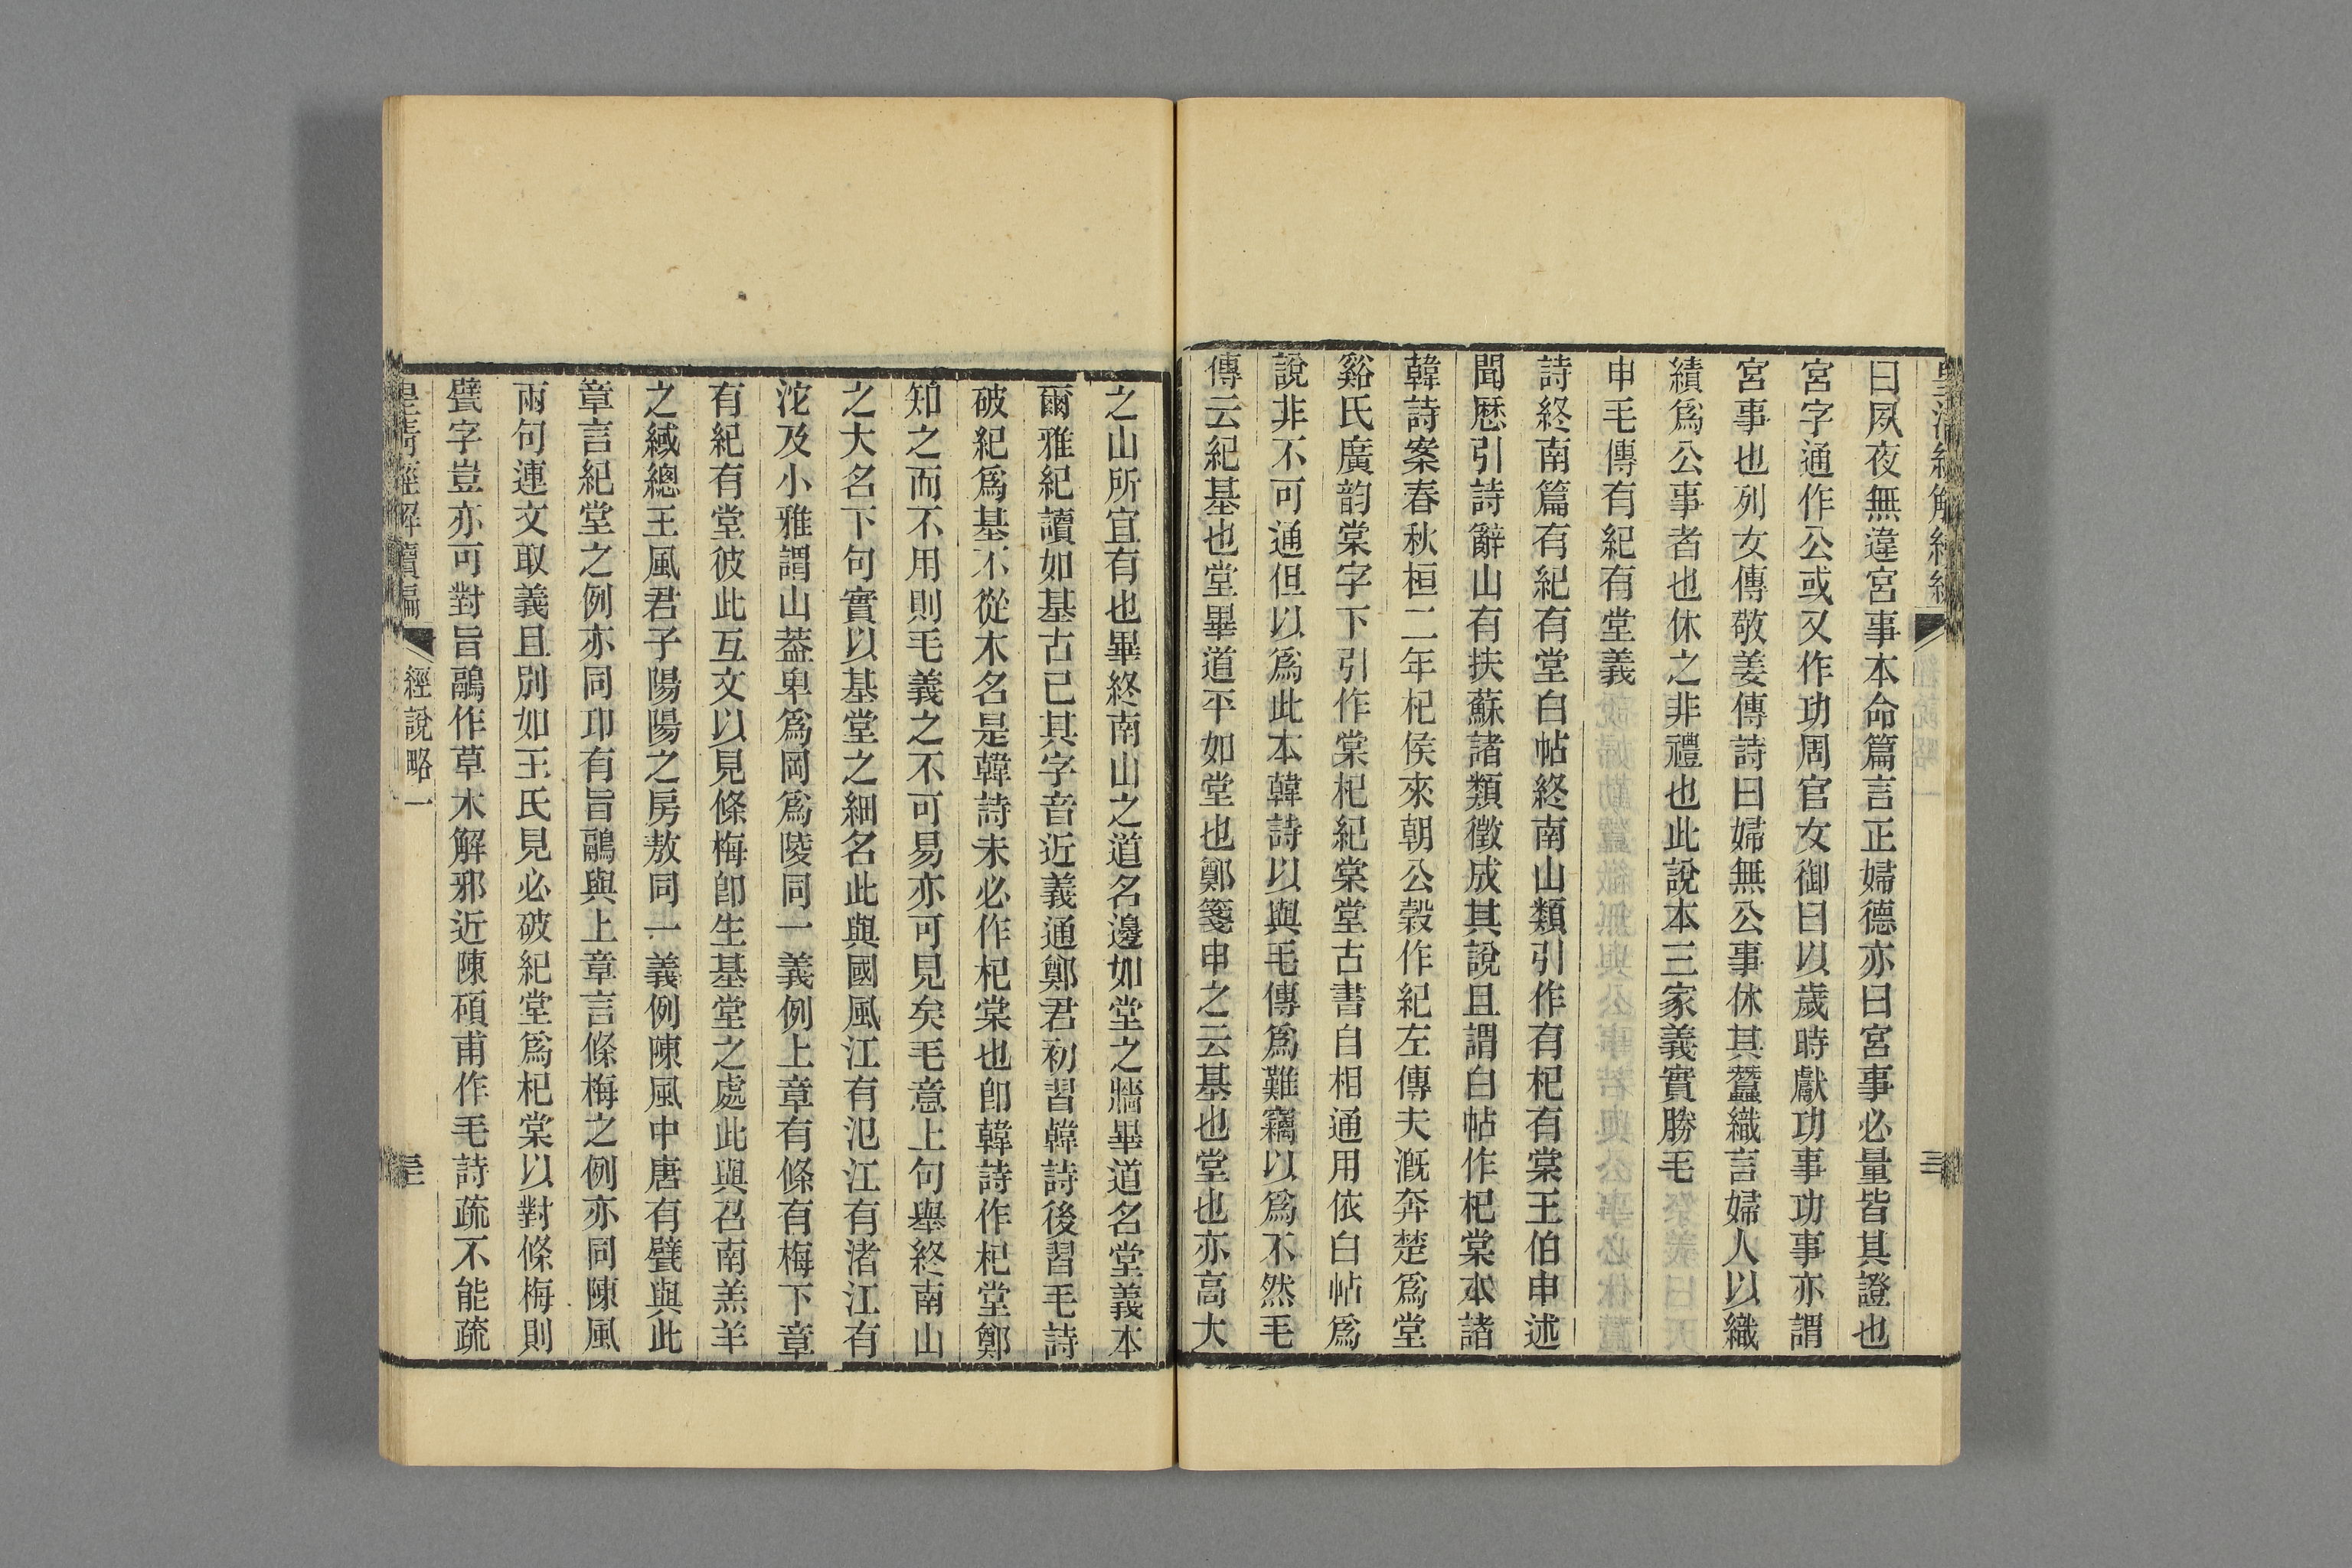 曰夙夜無違宮事本命篇言正婦德亦曰宮事必量皆其證也
宮字通作公或又作功周官女御曰以歲時獻功事功事亦謂
宮事也列女傳敬姜傳詩曰婦無公事休其蠶織言婦人以織
績爲公事者也休之非禮也此說本三家義實勝毛
申毛傳有紀有堂義
詩終南篇有紀有堂白帖終南山類引作有杞有棠王伯申述
聞歷引詩辭山有扶蘇諸類徵成其說且謂白帖作杞棠本諸
韓詩案春秋桓二年杞侯來朝公穀作紀左傳夫漑奔楚爲堂
谿氏廣韵棠字下引作棠杞紀棠堂古書自相通用依白帖爲
說非不可通但以爲此本韓詩以與毛傳爲難竊以爲不然毛
傳云紀基也堂畢道平如堂也鄭箋申之云基也堂也亦高大
之山所宜有也畢終南山之道名邊如堂之牆畢道名堂義本
爾雅紀讀如基古己其字音近義通鄭君初習韓詩後習毛詩
破紀爲基不從木名是韓詩未必作杞棠也卽韓詩作杞堂鄭
知之而不用則毛義之不可易亦可見矣毛意上句舉終南山
之大名下句實以基堂之細名此與國風江有汜江有渚江有
沱及小雅謂山葢卑爲岡爲陵同一義例上章有條有梅下章
有紀有堂彼此互文以見條梅卽生基堂之處此與召南羔羊
之緎總王風君子陽陽之房敖同一義例陳風中唐有甓與此
章言紀堂之例亦同卭有旨鷊與上章言條梅之例亦同陳風
兩句連文取義且別如王氏見必破紀堂爲杞棠以對條梅則
甓字豈亦可對旨鷊作草木解邪近陳碩甫作毛詩疏不能疏
皇清經解續編
經說略一